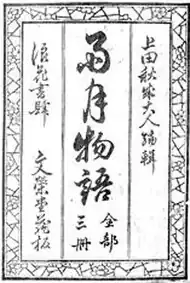 上田秋成大人編輯
雨月物語
全部
三冊
浪花書肆
文榮堂藏板